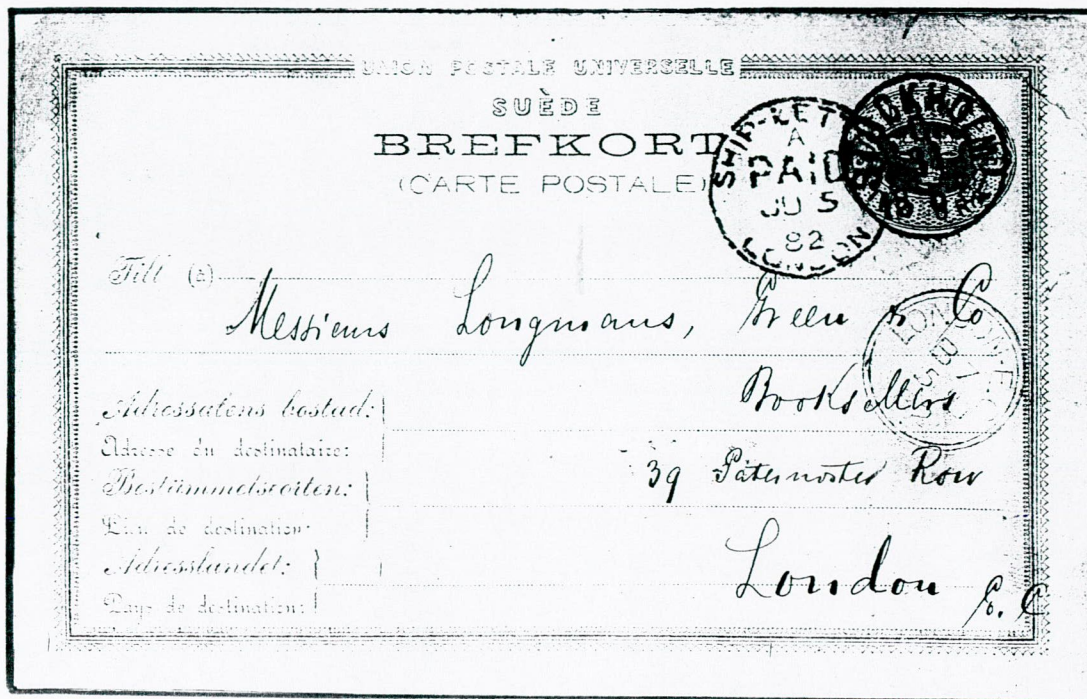 UNION POSTALE UNIVERSELLE
SUÈDE
BREFKORT
(CARTE POSTALE)
SHIP-LET
A
PAID
JU 5
82
LONDON
STOCKHOLM
Till (à)
Messieurs Longmans, Green & Co
LONDON
Booksellers
Adressatens bostad:
Adresse du destinataire:
39 Paternoster Row
Bestämmelseorten:
Lieu de destination:
London E. C
Adresslandet:
Pays de destination: